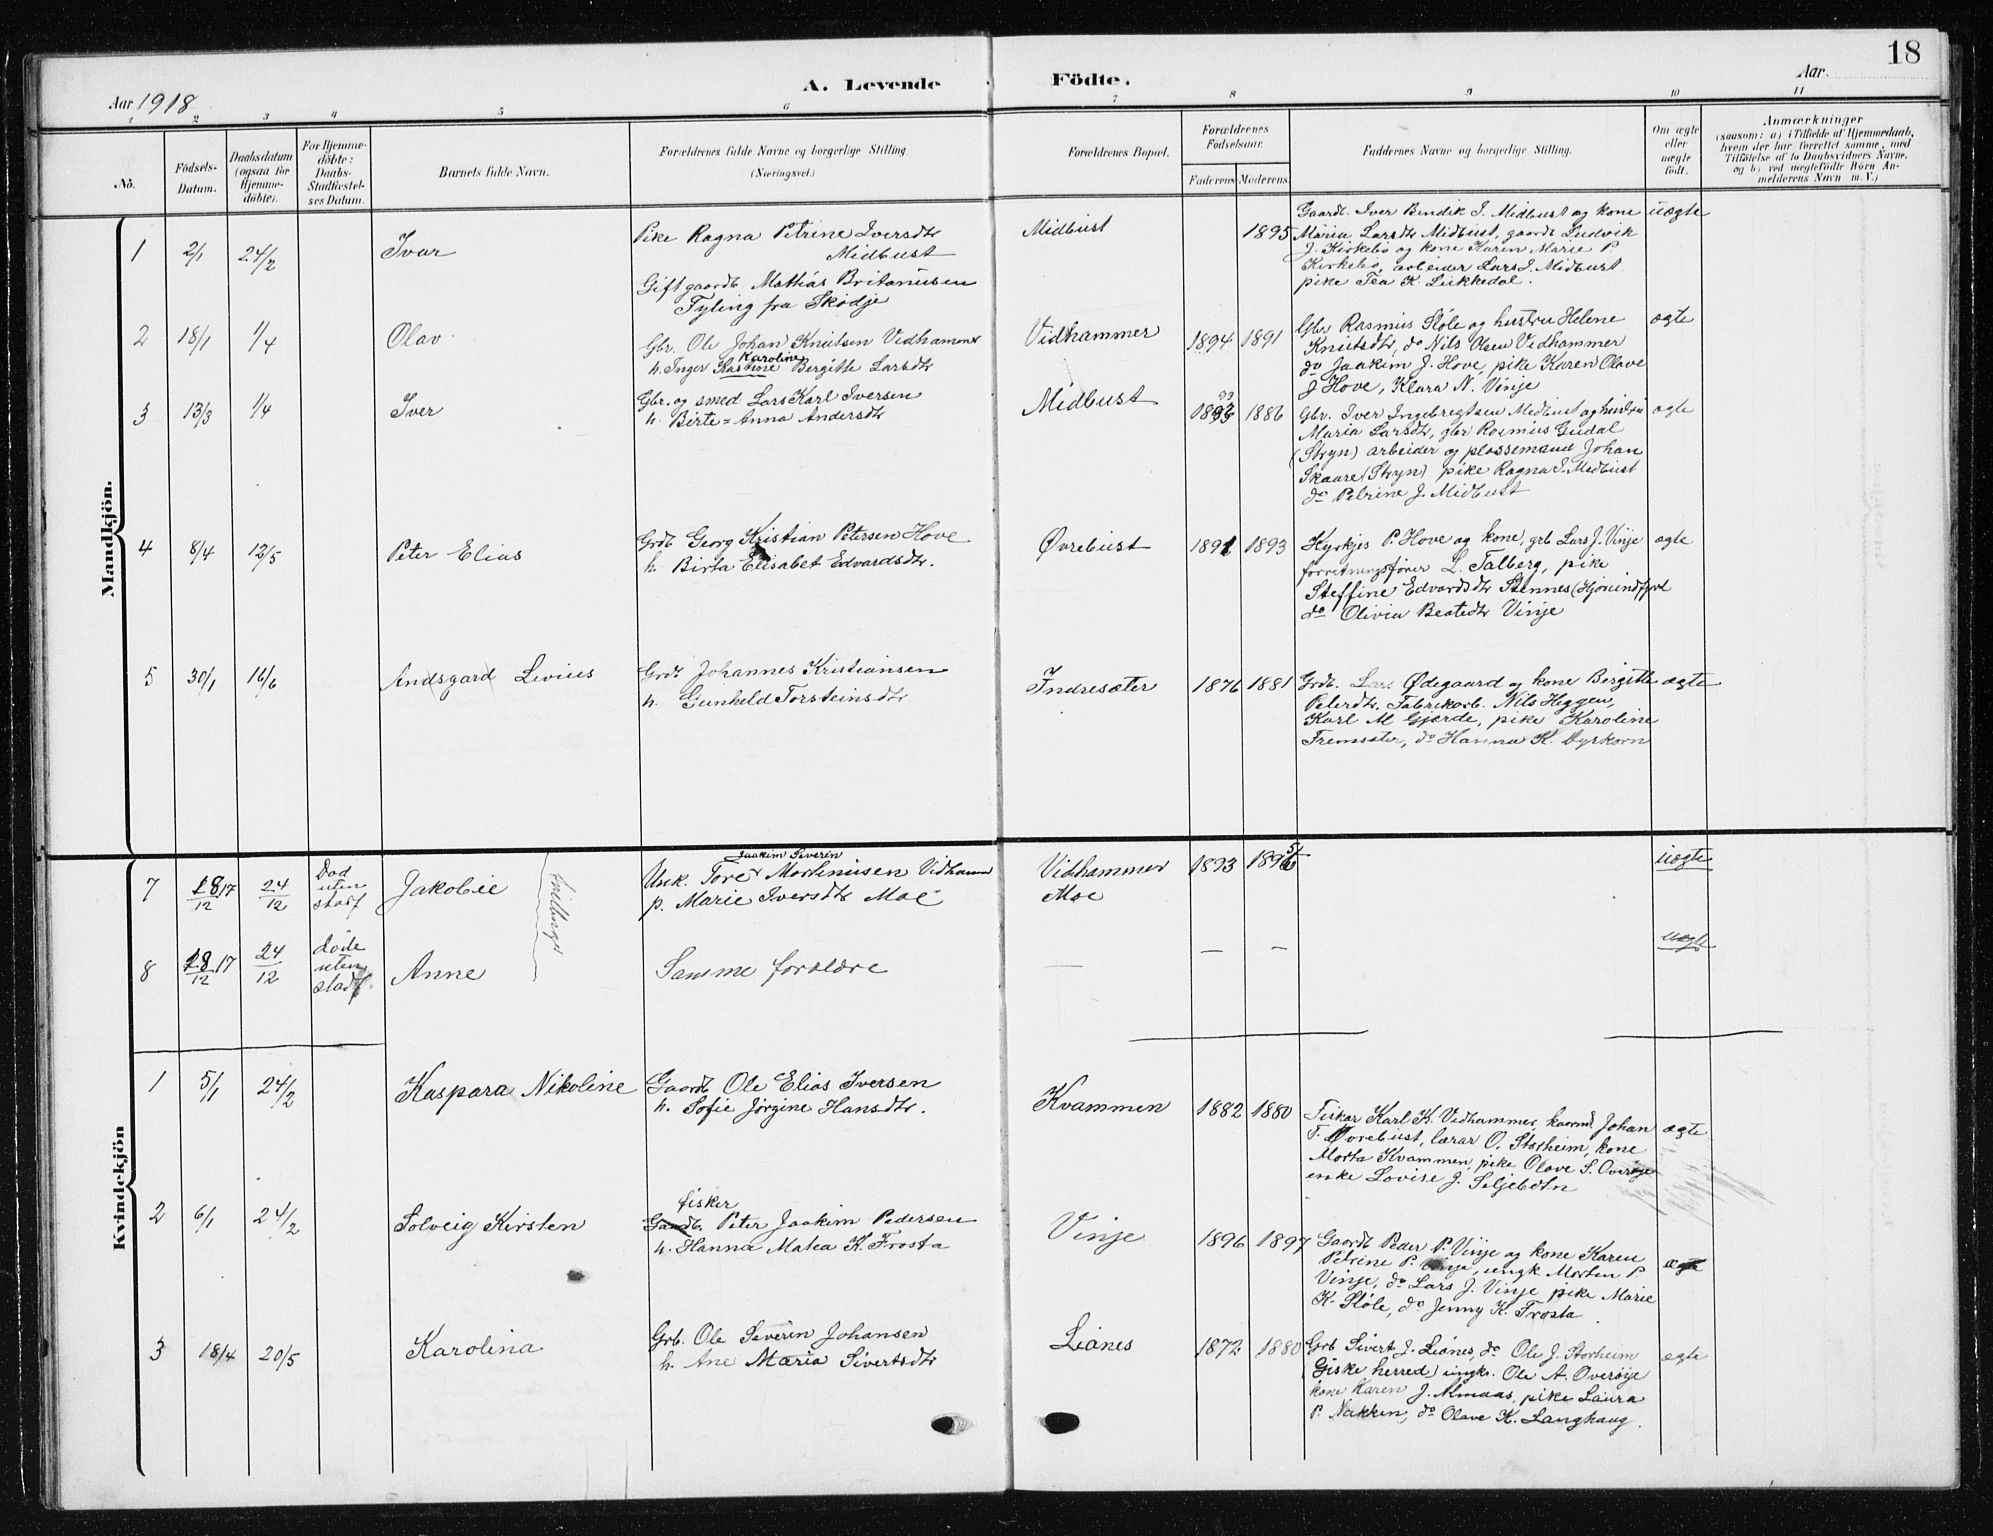 18
A. Levende Födte.
Aar 1918
Aar.
1 2 3 4 5 6 7 8 9 10 11
Nô.
Födsels-Datum.
Daabsdatum (ogsaa for Hjemme-döbte).
For Hjemme-döbte: Daabs-Stadfæstel-ses Datum.
Barnets fulde Navn.
Forældrenes fulde Navne og borgerlige Stilling (Næringsvei.)
Forældrenes Bopæl.
Forældrenes Födselsaar.
Faderens Moderens
Faddernes Navne og borgerlige Stilling.
Om ægte eller uægte födt.
Anmærkninger
(saasom: a) i Tilfælde af Hjemmedaab,
hvem der har forrettet samme, med
Tilföielse af to Daabsvidners Navne,
og b) ved uægtefödte Börn An-
melderens Navn m. V.)
Mandkjön.
1 2/1 24/2 Ivar
Pike Ragna Petrine Iversdtr
Midbust
Gift gaardb. Mathias Britanusen
Fyling fra Skodje
Midbust
1895
Gaardb. Iver Bendik I. Midbust og kone
Maria Larsdtr Midbust, gaardb Ludvik
J. Kirkebø og kone Karen Marie P.
Kirkebø, arbeider Lars I. Midbust
pike Tea K. Leikkedal.
uægte
2 18/1 1/4 Olav
Gbr. Ole Johan Knutsen Vidhammer
Karoline
h. Inger Kastine Bergitte Larsdtr
Vidhammer
1894 1891
Gbr Rasmus Støle og hustru Helene
Knutsdtr, do Nils Olsen Vidhammer
do Jaakim J. Hove, pike Karen Olave
J Hove, Klara N. Vinje
ægte
3 13/3 1/4 Iver
Gbr. og smed Lars Karl Iversen
h. Birte=Anna Andersdtr
Midbust
1886
Gbr. Iver Ingebregtsen Midbust og hustru
Maria Larsdtr, gbr Rasmus Gudal
(Stryn) arbeider og plassemand Johan
Skaare (Stryn) pike Ragna I. Midbust
do Petrine J. Midbust
ægte
4 8/4 12/5 Peter Elias
Grdb Georg Kristian Petersen Hove
h. Birta Elisabet Edvardsdtr.
Øvrebust
1891 1893
Kyrkjes P. Hove og kone, grb Lars J. Vinje
forretningsfører L. Talberg, pike
Steffine Edvardsdtr Stennes (Hjørundfjord
do Olivia Beatedtr Vinje
ægte
5 30/1 16/6 Andsgard Livius
Grdb Johannes Kristiansen
h. Gunheld Torsteinsdtr
Indresæter
1876 1881
Grdb. Lars Ødegaard og kone Bergitte
Petersdtr, Fabrikarb. Nils Heggen,
Karl M Gjærde, pike Karoline
Fremsæter, do Hanna K. Dyrkorn
ægte
7 18/12 17 24/12
Død uten stadf
Jakobie
tvillinger
Jaakim Severin
Unk. Tore Martinusen Vidhamm
p. Marie Iversdtr Moe
Vidhammer
Moe
1893
uægte
8 18/12 17 24/12
Døde uten stadf
Anne
Samme forældre
— — —
uægte
Kvindekjön
1 5/1 24/2 Kaspara Nikoline
Gaardb Ole Elias Iversen
h. Sofie Jørgine Hansdtr.
Kvammen
1882 1880
Fiskar Karl K. Vidhammer, kaarmd. Johan
T. Øvrebust, lærar O. Storheim, kone
Marta Kvammen, pike Olave S. Overøye
enke Lovise J. Seljebotn
ægte
2 6/1 24/2 Solveig Kirsten
fisker
Gaardb. Peter Jaakim Pedersen
h. Hanna Matea K. Frosta
Vinje
1896 1897
Gaardb Peder P. Vinje og kone Karen
Petrine P. Vinje, ungk. Morten P.
Vinje, do Lars J. Vinje pike Marie
K. Støle, do Jenny K. Frosta.
ægte
3 18/4 20/5 Karolina
Grb. Ole Severin Johansen
h. Ane Maria Sivertsdtr
Lianes
1872 1880
Grb Sivert J. Lianes, do Ole J. Storheim
(Giske herred) ungkr. Ole A. Overøye
kone Karen J. Almaas, pike Laura
P. Nakken, do Olave K. Langhaug.
ægte